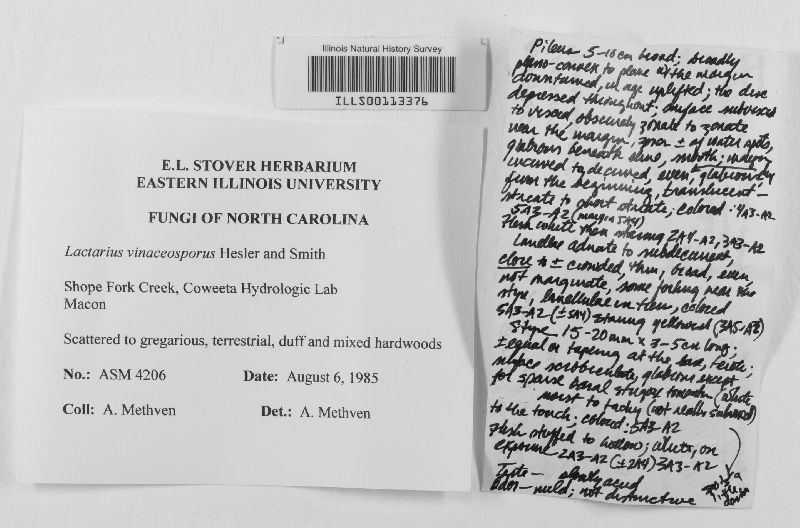 Illinois Natural History Survey
ILLS00113376
E.L. STOVER HERBARIUM
EASTERN ILLINOIS UNIVERSITY
FUNGI OF NORTH CAROLINA
Lactarius vinaceosporus Hesler and Smith
Shope Fork Creek, Coweeta Hydrologic Lab
Macon
Scattered to gregarious, terrestrial, duff and mixed hardwoods
No.: ASM 4206 Date: August 6, 1985
Coll: A. Methven Det.: A. Methven
Pileus 5-10 cm broad; broadly
plano-convex to plane the margin
downturned, in age uplifted; the disc
depressed throughout; surface subviscid
to viscid, obscurely zonate to zonate
near the margin, zones ± of water spots,
glabrous beneath slime, smooth; margin
incurved to decurved, even, glabrous
from the beginning, translucent-
striate to short striate; colored: 4A3-A2
5A3-A2 (margin 5A4)
Flesh white then staining 2A4-A2, 3A3-A2
Lamellae adnate to subdecurrent,
close to ± crowded, thin, broad, even,
not marginate, some forking near the
stipe, lamellulae in tiers, colored
5A3-A2 (±5A4) staining yellowish (3A5-A3)
Stipe 15-20 mm x 3-5 cm long;
± equal or tapering at the base, terete;
surface scrobiculate, glabrous except
for sparse basal strigose tomentum (white
moist to tacky (not really subviscid)
to the touch; colored: 5A3-A2
Flesh stuffed to hollow; white, on
exposure 2A3-A2 (±2A4) 3A3-A2
Taste - slowly acrid
Odor - mild; not distinctive